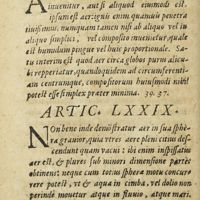 Ainuentur, aut si aliquod eiusmodi est,
ipsum est aer: ignis enim quanquam penetra
tiuissimus, nunquam tamen nisi ab aliquo vel in
aliquo simplici, vel composito inuenitur, quale
est humidum pingue vel huic proportionale. Sa-
tis interim est quod aer circa globos purus alicu-
bi reperiatur, quandoquidem ad circunferenti-
am centrumque, compositorum huiusmodi nihil
potest esse simplex prater minima. 39. 37.
ARTIC. LXXIX.
NOn bene inde demonstratur aer in sua sphę-
ra grauior, quia vtres aere pleni citius des-
cendunt quam vacui: ibi enim inspissatus
aer est, & plures sub minori dimensione partes
obtinens: neque cum totus sphæra motu concur-
rere potest, vt & aqua in cimba, vel dolio non
perinde mouetur atque in fluuio, atque mari.